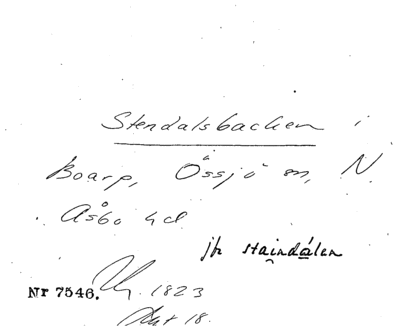 Stendalsbacken i
Boarp, Össjö sn, N.
Åsbo hd
jfr staindálen
Nr 7546. 1823